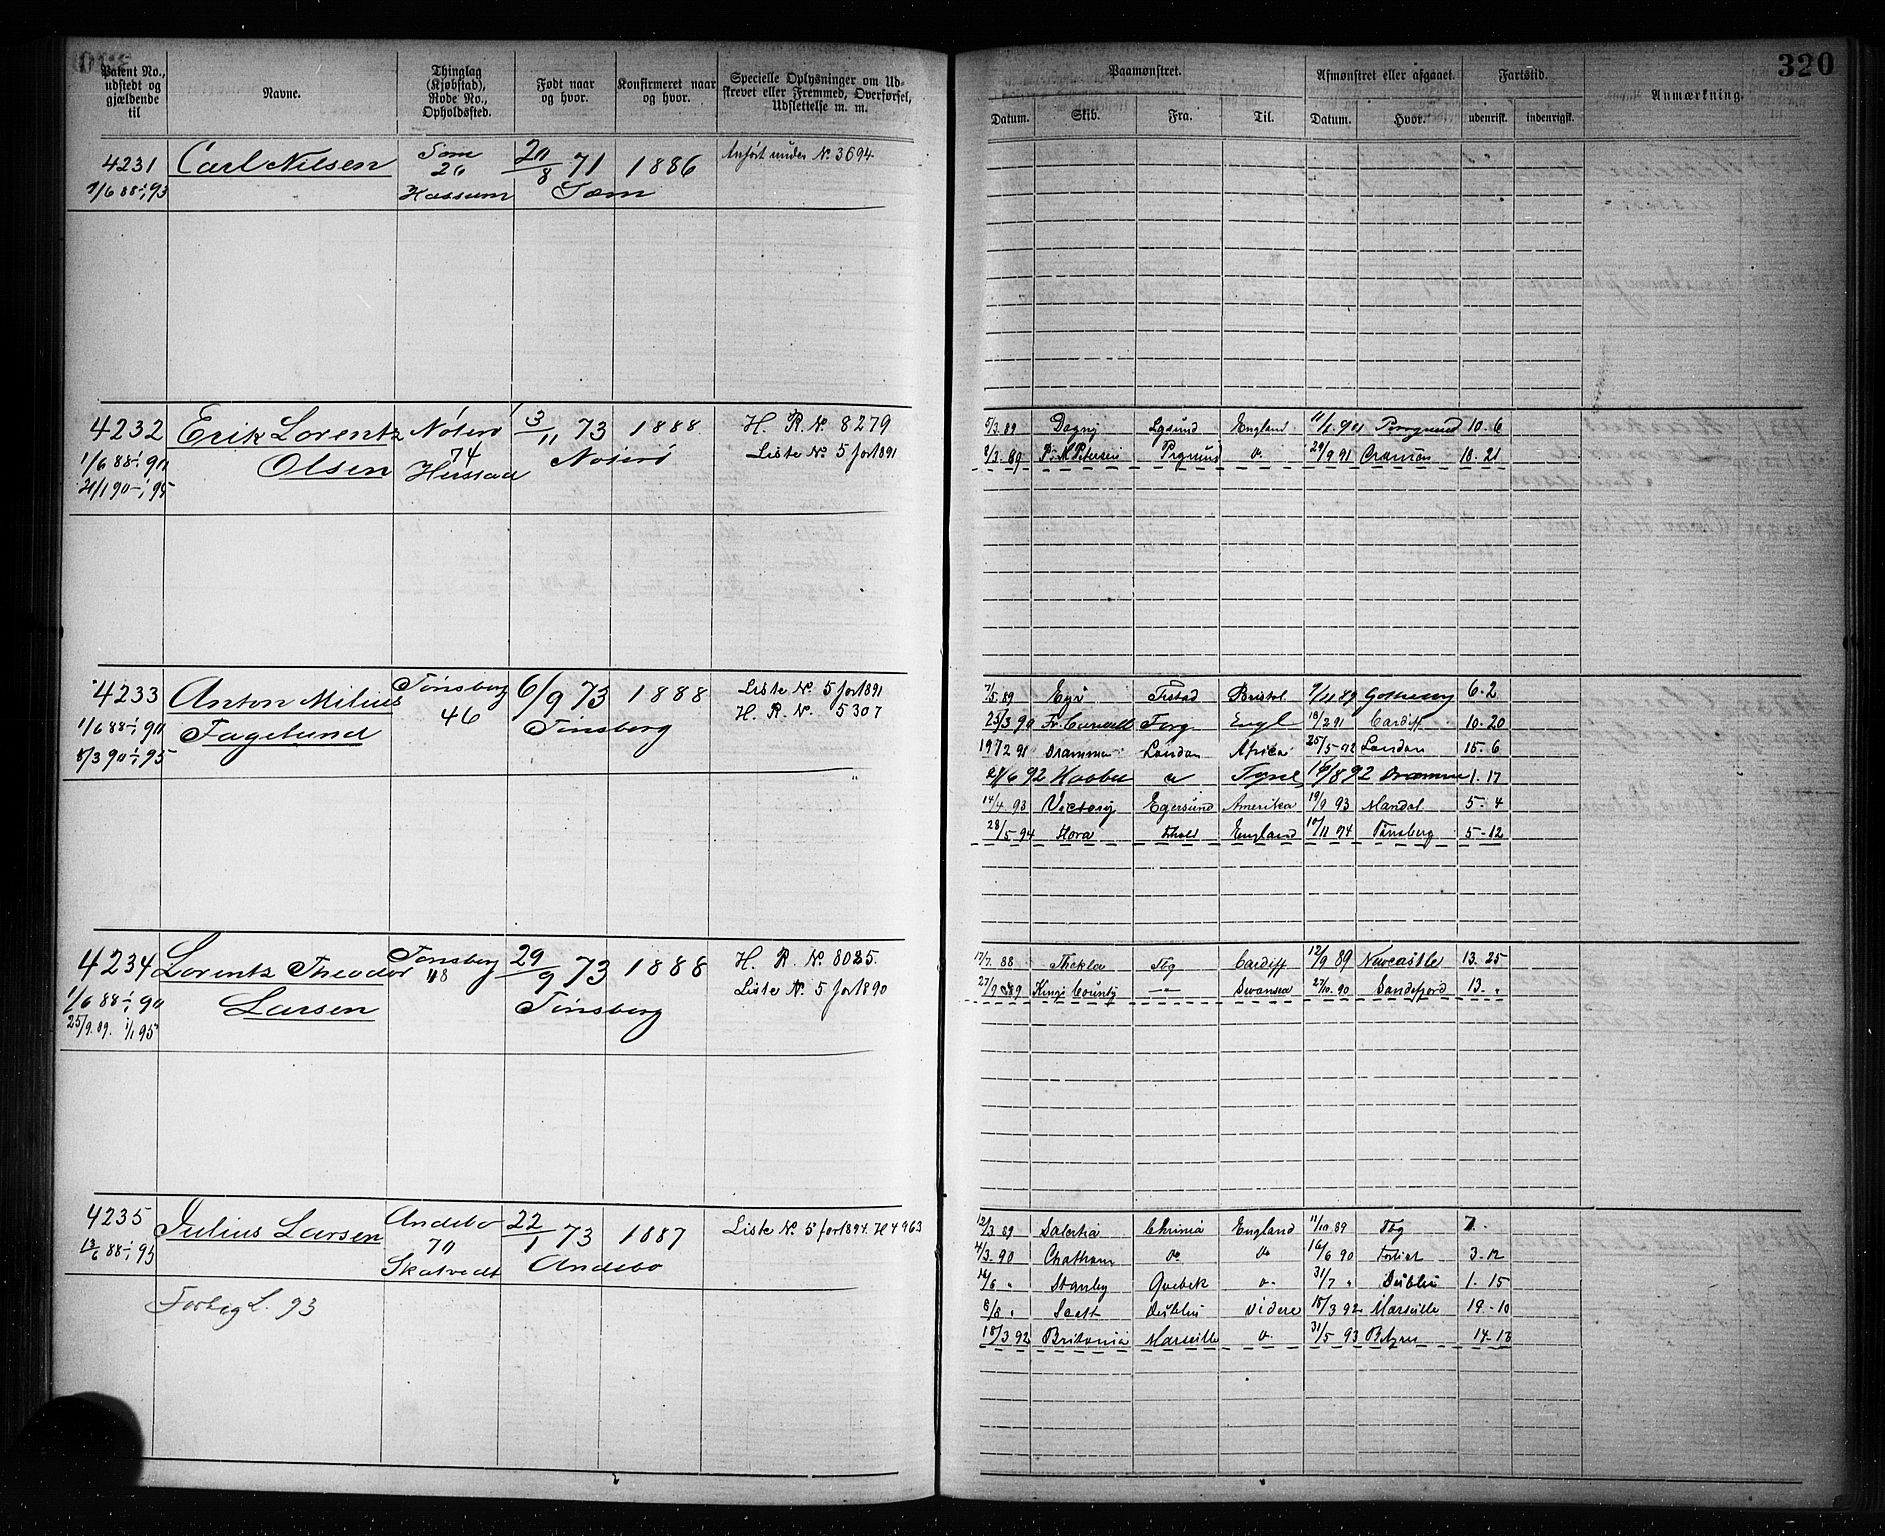 320
Patent No., udstedt og gjældende til
Navne.
Thinglag (Kjøbstad), Rode No., Opholdssted.
Født naar og hvor.
Konfirmeret naar og hvor.
Specielle Oplysninger om Udskrevet eller Fremmed, Overførsel, Udslettelse m. m.
Paamønstret.
Afmønstret eller afgaaet.
Fartstid.
Anmærkning.
Datum. Skib. Fra. Til. Datum. Hvor. udenrigsk. indenrigsk.
4231 Carl Nilsen 26 20/8 71 1886 Anført under No. 3694
1/6 88 ÷ 1/1 93
4232 Erik Lorentz Nøterø 3/11 73 1888 H. R. No 8279
1/6 88 ÷ 1/1 90 Olsen 74 Nøterø Liste No. 5 for 1891
21/1 90 ÷ 1/1 95
5/3 89 Dagny England 10. 6
P. M. Petersen 29/9 91 10. 21
4233 Anton Milius Tønsberg 6/9 73 1888 Liste No. 5 for 1891
1/6 88 ÷ 1/1 90 Fagelund 46 Tønsberg H. R. No. 5307
8/3 90 ÷ 1/1 95
7/5 89 Bristol 6. 2
25/3 90 Engl 18/2 91 Cardiff 10. 20
Drammen London Afrika 25/5 92 London 15. 6
Tyne 16/8 92 Drammen 1. 17
14/4 93 Victory Egersund Amerika 19/9 93 Mandal 5. 4
28/5 94 England Tønsberg 5-12
4234 Lorentz Theodor Tønsberg 29/9 73 1888 H. R. No. 8025.
1/6 88 ÷ 1/1 90 Larsen 48 Tønsberg Liste No. 5 for 1890
25/9 89. 1/1 95
17/7 88 Thekla Tbg Cardiff 12/9 89 Newcastle 13. 25
27/9 89 Kings County —"— Swansea 27/10. 90 Sandefjord 13. "
4235 Julius Larsen Andebo 22/1 73 1887 Liste No. 5 for 1894. H 4963
13/6 88 ÷ 1/1 93 70 Skatvedt Andebo
93
12/3 89 England 11/10 89 Tbg 7.
4/3. 90 Chatham do do 16/6 90 3. 12
Stanley Quebek do. 31/7 " Dublin 1. 15
8/8 " Dublin videre 18/3 92 Marseille 19. 10
18/3 92 Britania Marseille do. 31/5 93 14. 13